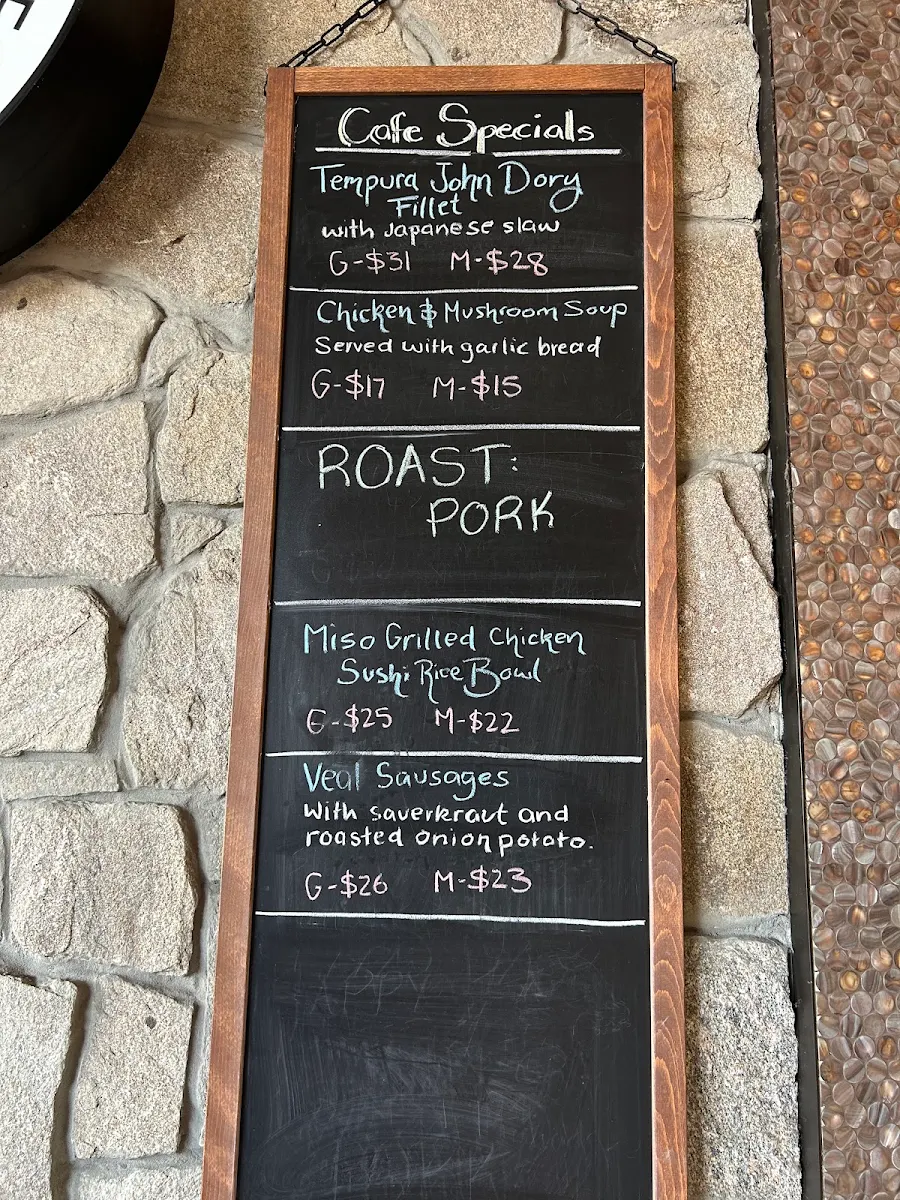 Cafe Specials
Tempura John Dory
Fillet
with Japanese slaw
G-$31 M-$28
Chicken & Mushroom Soup
Served with garlic bread
G-$17 M-$15
ROAST:
PORK
Miso Grilled Chicken
Sushi Rice Bowl
G-$25 M-$22
Veal Sausages
With sauerkraut and
roasted onion potato.
G-$26 M-$23